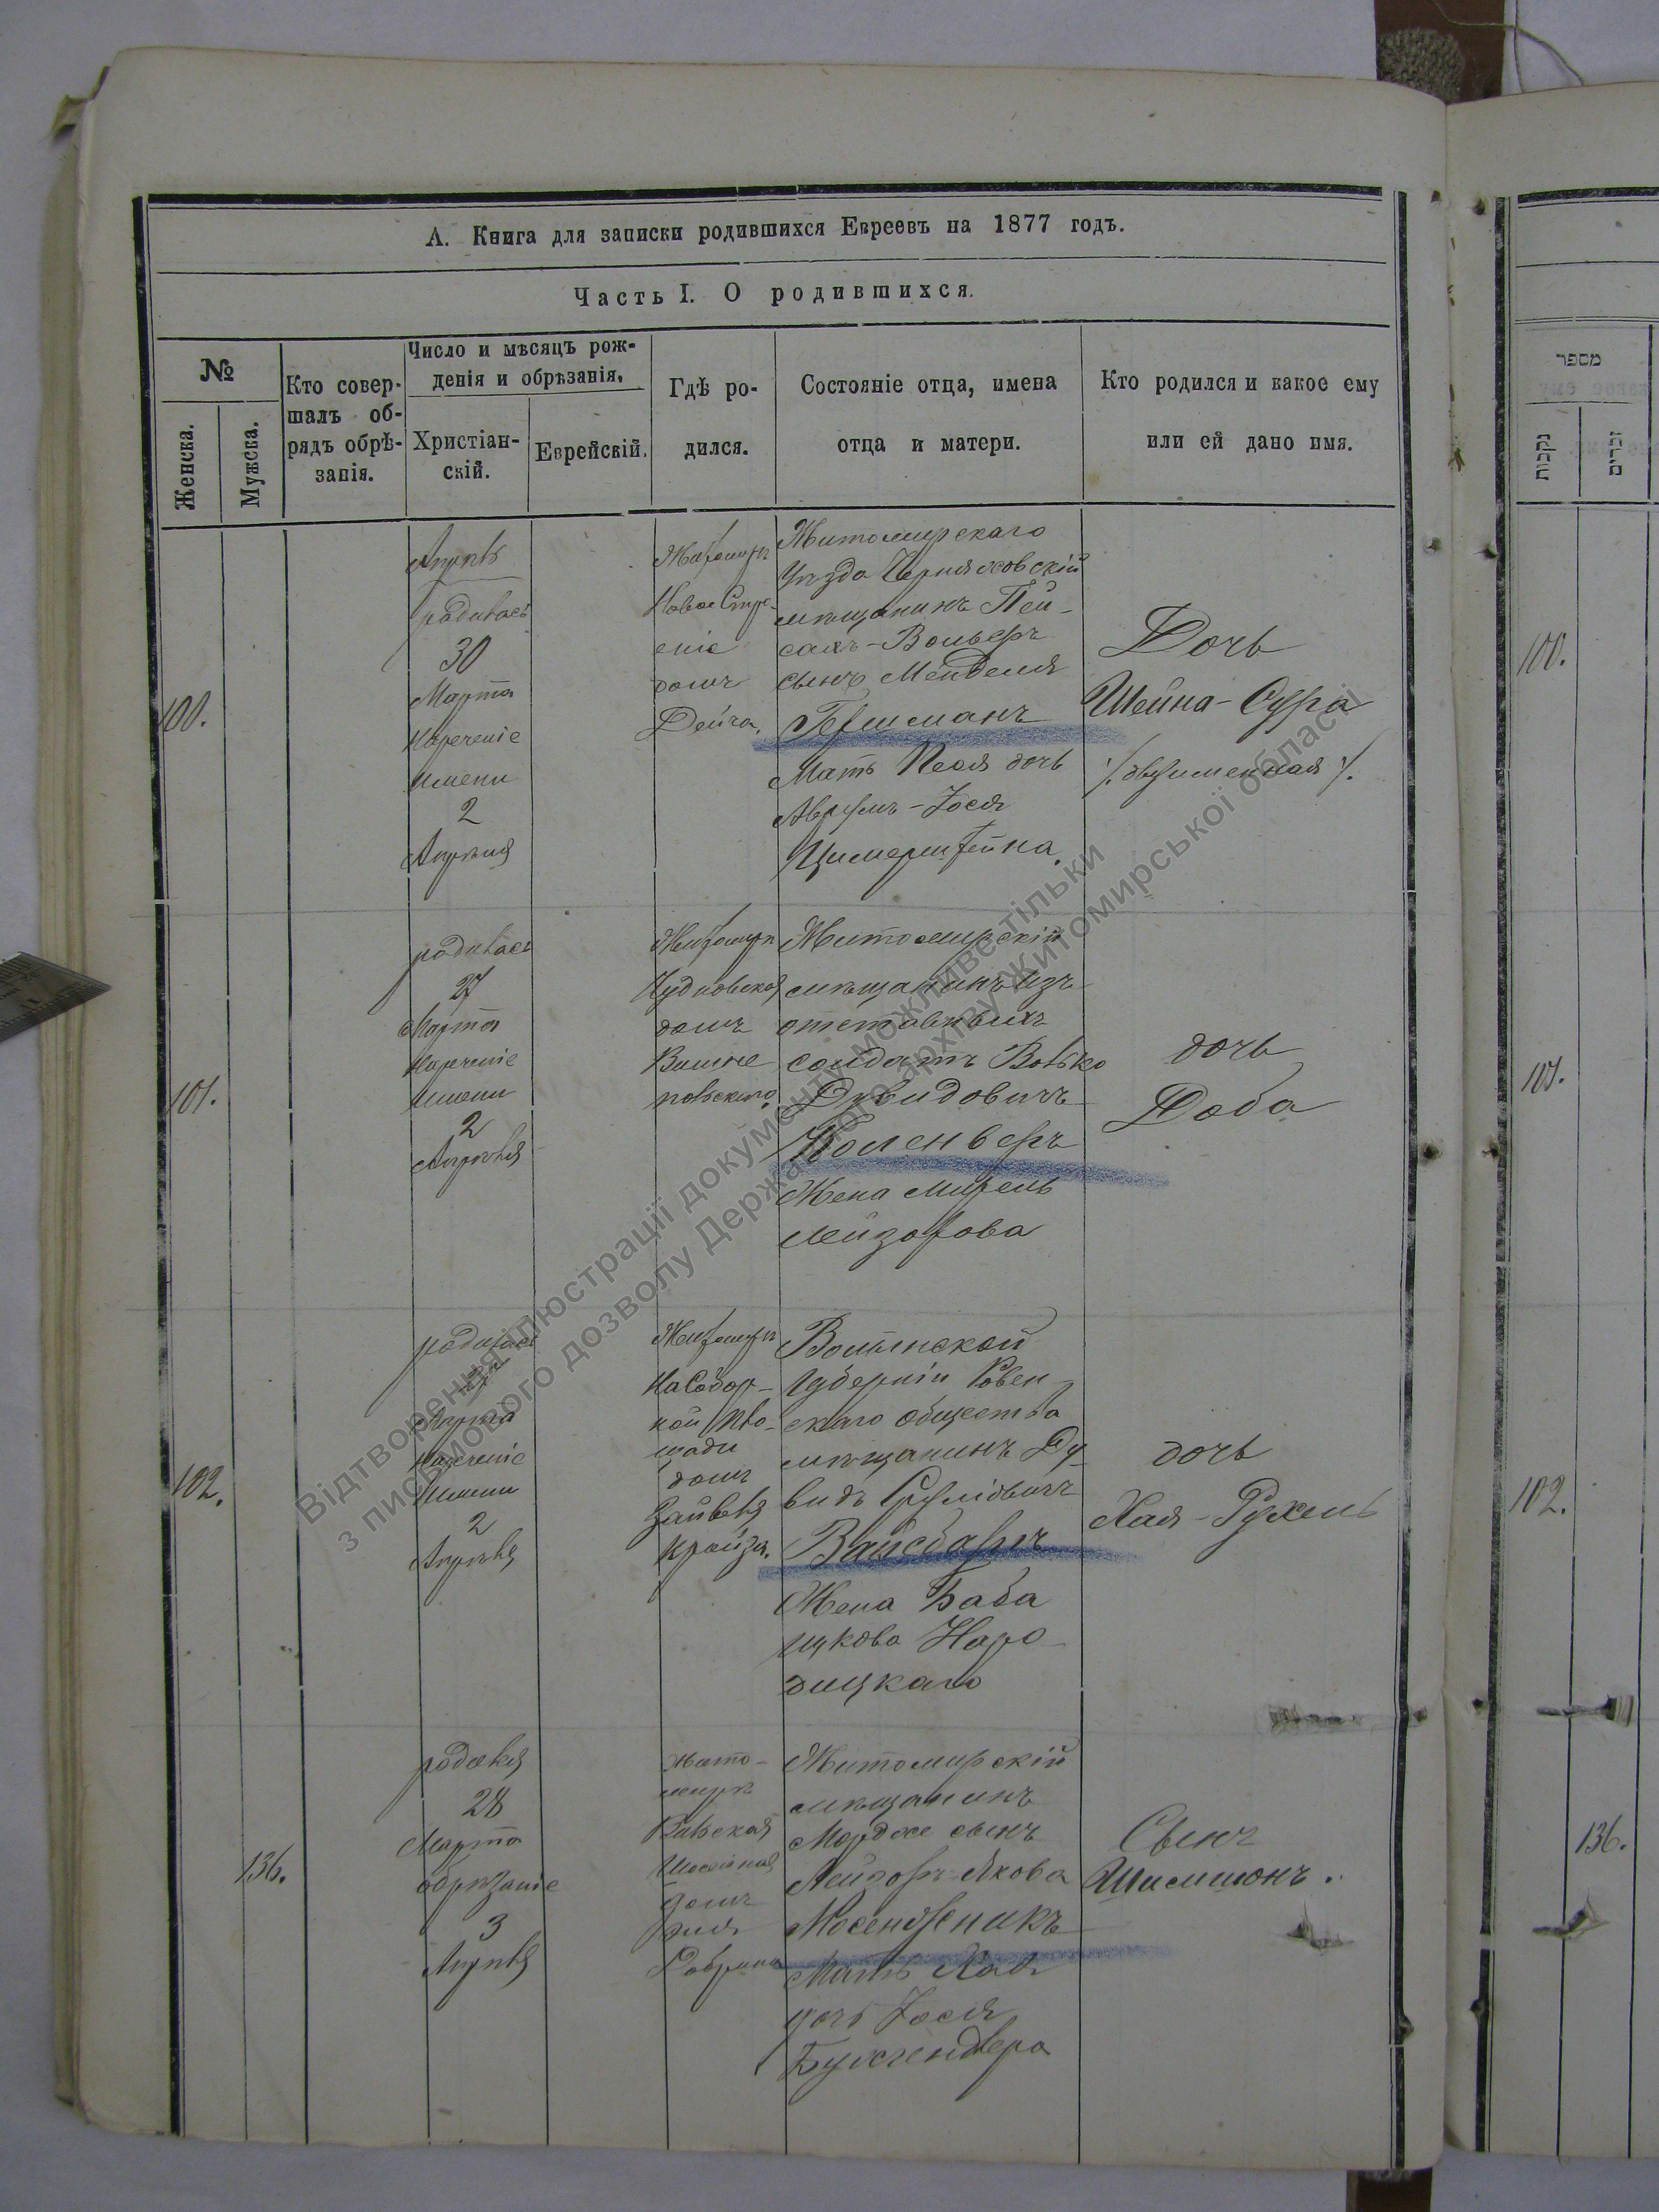 А. Книга для записки родившихся Евреевъ на 1877 годъ.
Часть I. О родившихся.
№
Женска.
Мужска.
Кто совер-
шалъ об-
рядъ обрѣ-
занія.
Число и мѣсяцъ рож-
денія и обрѣзанія.
Христіан-
скій.
Еврейскій.
Гдѣ ро-
дился.
Состояніе отца, имена
отца и матери.
Кто родился и какое ему
или ей дано имя.
100.
Апрѣль
родилась
30
Марта
Нареченіе
Имени
2
Апрѣля
Житомиръ
Новое Стро-
еніе
домъ
Дейча.
Житомирскаго
Уѣзда Черняховскій
мѣщанинъ Пей-
сахъ-Вольфъ
сынъ Менделя
Гершманъ
Мать Песя дочь
Аврумъ-Іося
Цимерштейна.
Дочь
Шейна-Сура
/двуименная/.
101.
родилась
27
Марта
Нареченіе
Имени
2
Апрѣля
Житомиръ
Чудновская
домъ
Вишне
польскаго
Житомирскій
мѣщанинъ изъ
отставныхъ
солдатъ Волько
Давидовичъ
Жена Мирель
Лейзорова
дочь
Доба
102.
родилась
27
Марта
Нареченіе
Имени
2
Апрѣля
Житомиръ
На Собор-
ной Пло-
щади
домъ
Зайвеля
Крайза.
Волынской
Губерніи Ровен-
скаго общества
мѣщанинъ Ду
видъ Сруліовичъ
Вайсбаръ
Жена Баба
Ицкова Наро
дицкаго
дочь
Хая-Рухель
136.
родился
28
Марта
обрѣзаніе
3
Апрѣля
Жито-
миръ
Кіевская
Шосейная
домъ
Мѣщанинъ
Житомирскій
мѣщанинъ
Мордхе сынъ
Лейзоръ-Якова
Мосендзникъ
Мать Хая
дочь Іося
Сынъ
Шимшонъ.
מספר
נקבות
זכרים
100.
101.
102.
136.
Відтворення ілюстрації документу можливе тільки
з письмового дозволу Державного архіву Житомирської області